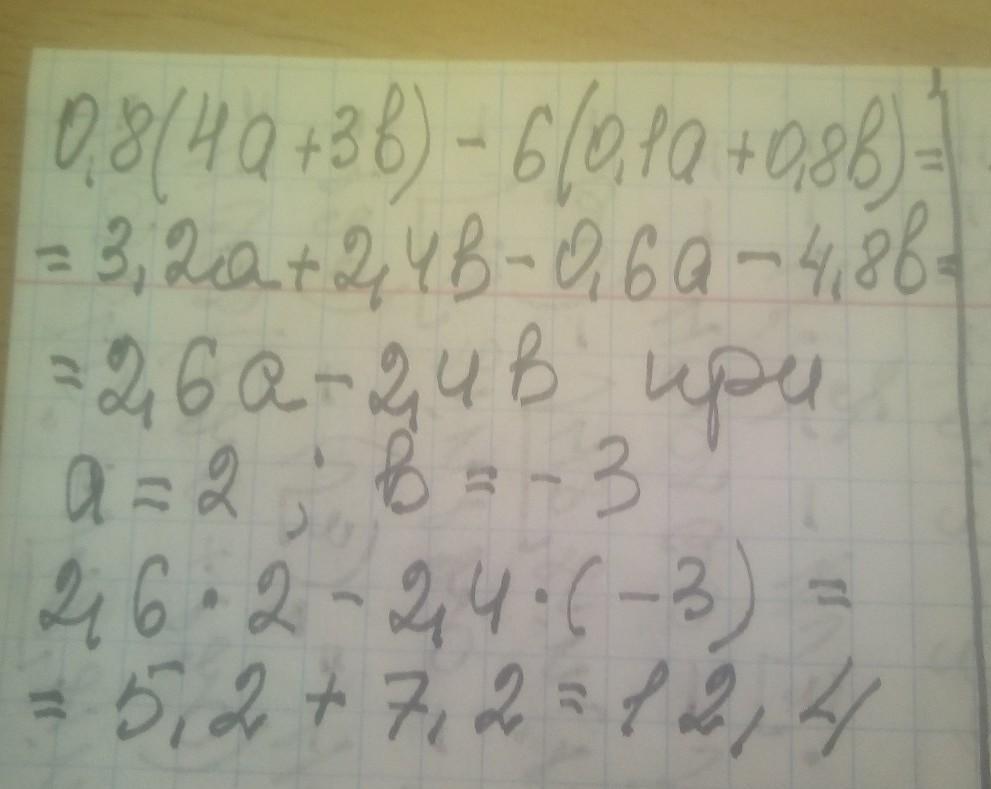 0,8(4a+3в) - 6(0,1a+0,8в)=
= 3,2a+2,4в-0,6a-4,8в=
=2,6a-2,4в при
a=2; в=-3
2,6·2-2,4·(-3)=
= 5,2+7,2=12,4